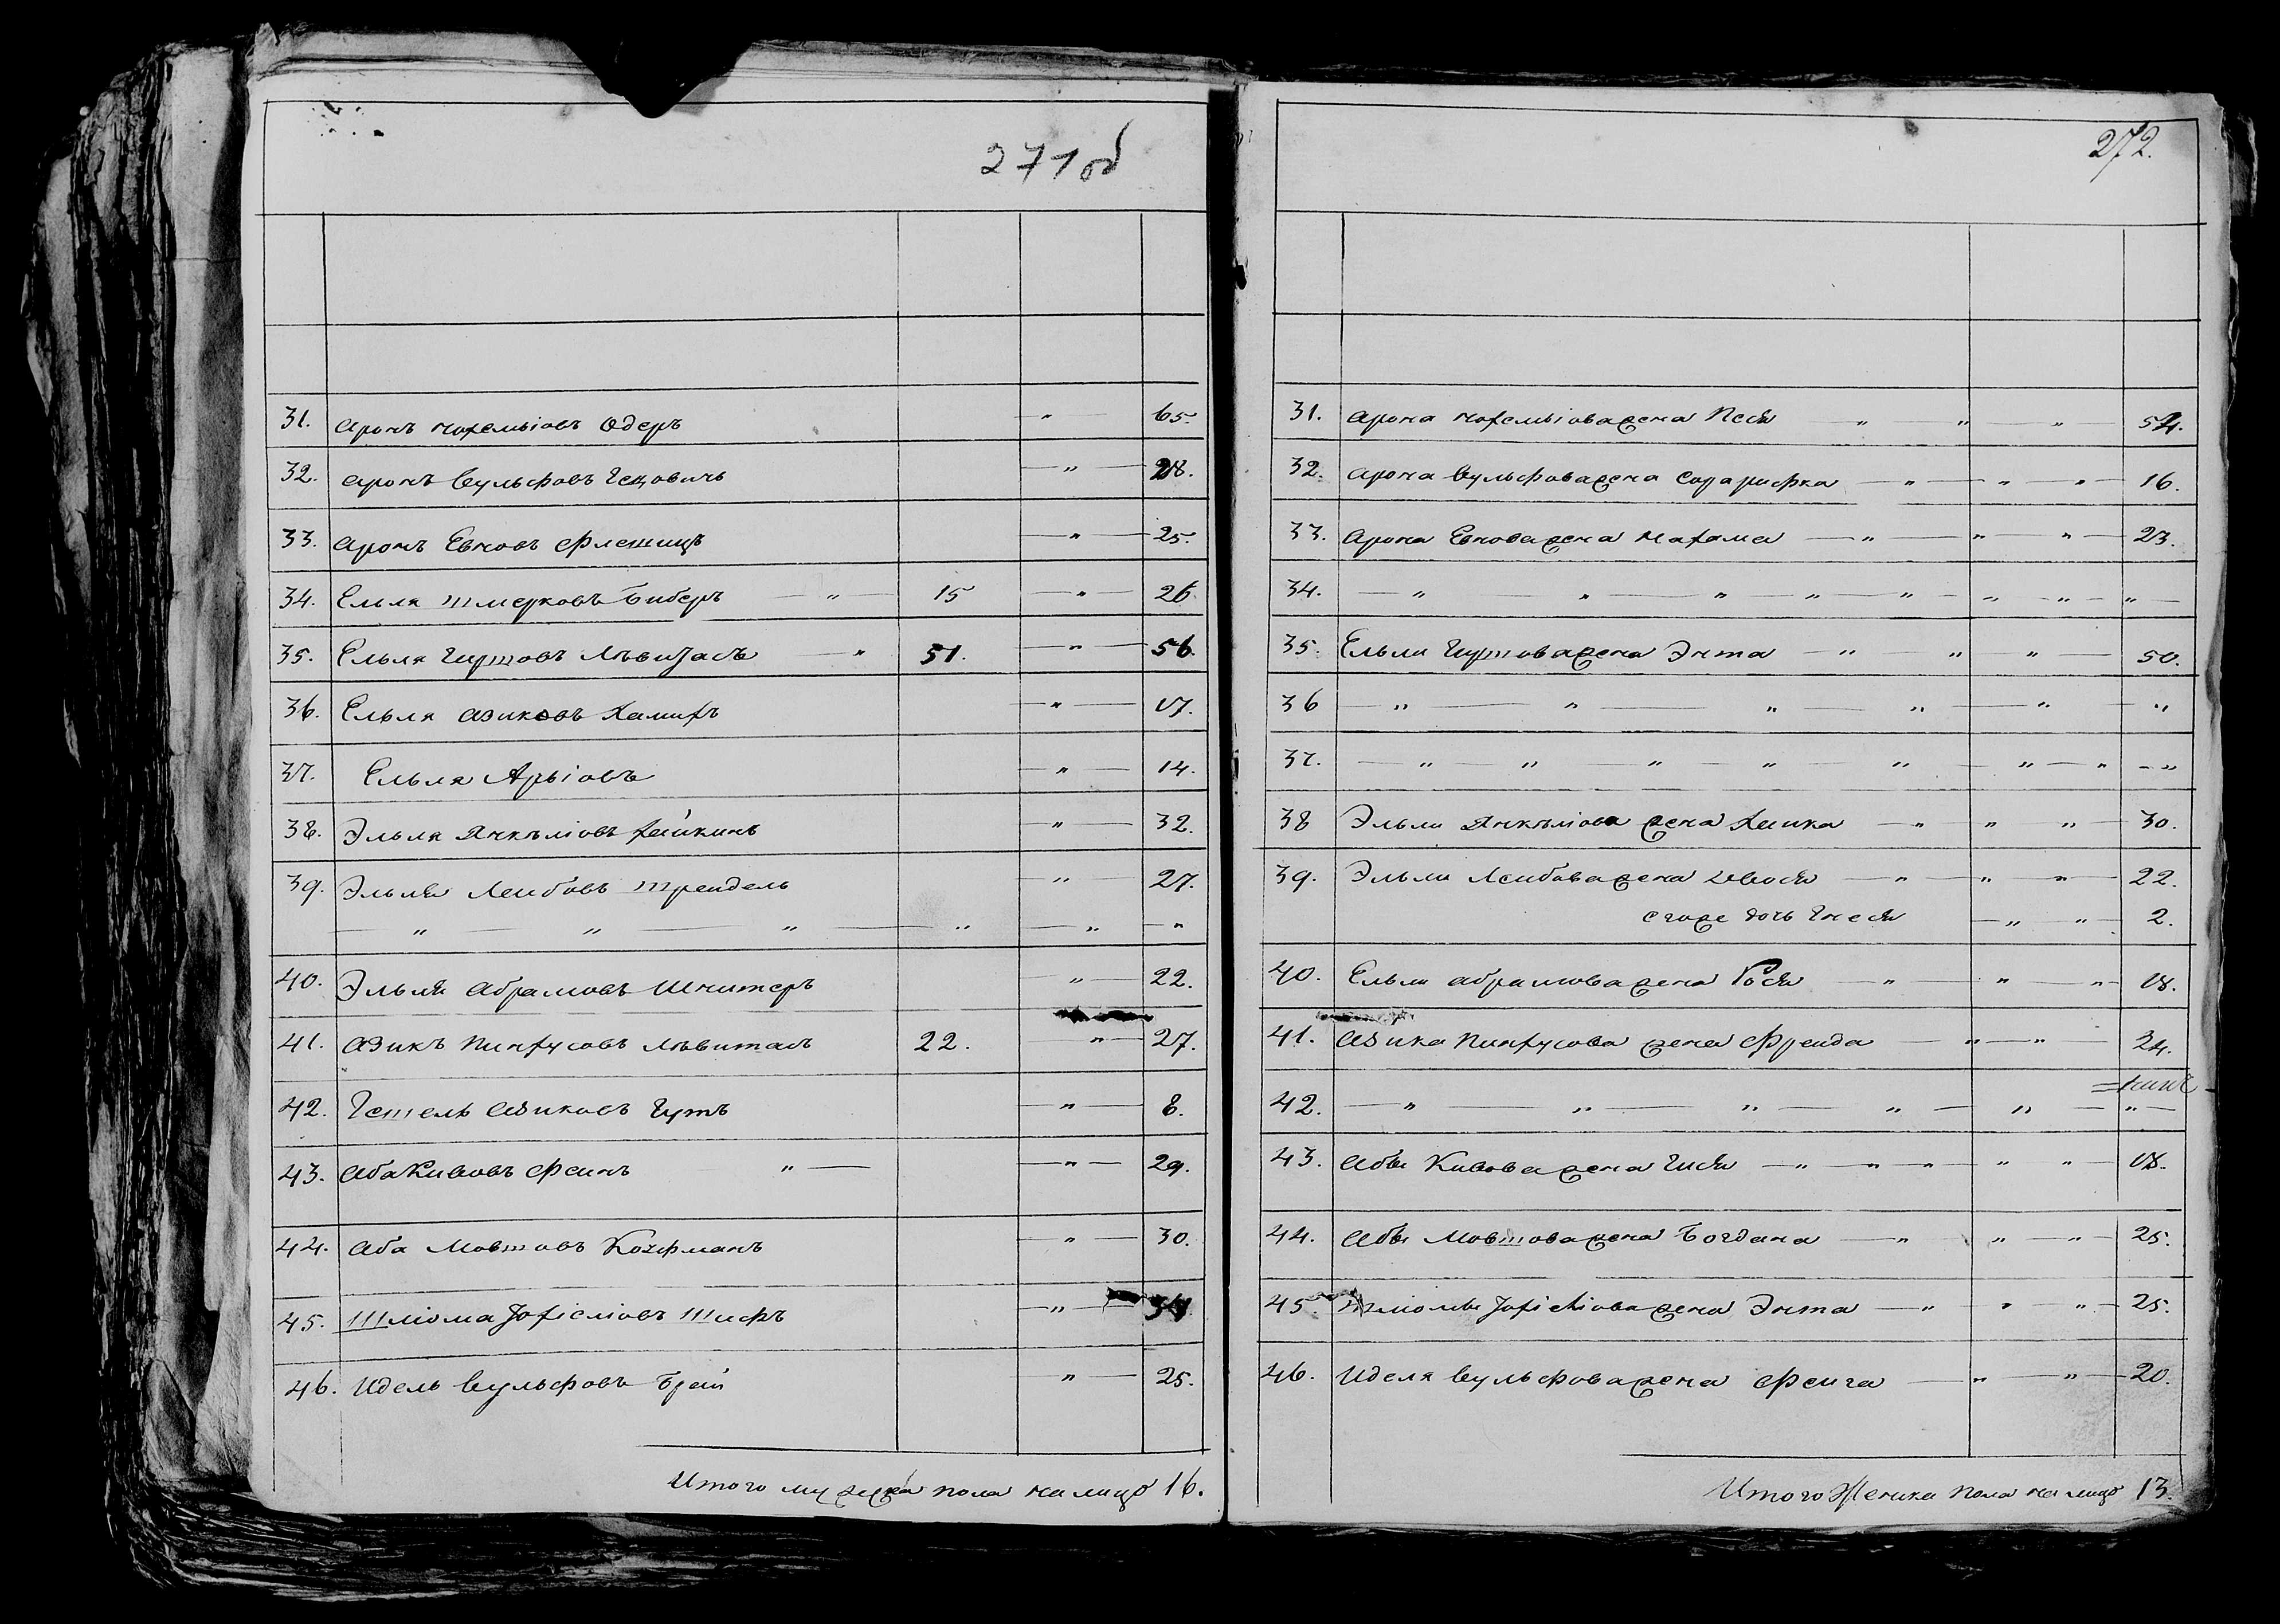 271 об
31. Аронъ Нохемьіовъ Одеръ " 65.
32. Аронъ Вульфовъ Гецовичъ " 28.
33. Аронъ Евновъ Флешицъ " 25.
34. Ельля Шмерковъ Биберъ " 15 " 26
35. Ельля Гиршовъ Лѣвитасъ " 51. " 56.
36. Ельля Азиковъ Хаимъ " 17.
37. Ельля Арьіовъ " 14.
38. Эльля Янкѣліовъ Хайкинъ " 32.
39. Эльля Леибовъ Треидель " 27.
" " " " " "
40. Эльля Абрамовъ Шнитеръ " 22.
41. Азикъ Пинхусовъ Лѣвитасъ 22. " 27.
42. Гешель Азиковъ Гутъ " 8.
43. Аба Кивовъ Феинъ " " 29.
44. Аба Мовшовъ Кочфманъ " 30.
45. Шліома Іохіеліовъ Шифъ "
46. Идель Вульфовъ Брай " 25.
Итого мужеска пола на лицо 16.
272.
31. Арона Нохемьіова жена Песя " " " 54.
32. Арона Вульфова жена Сорарифка " " " 16.
33. Арона Евнова жена Нахама " " " 23.
34. " " " " " " " "
35. Ельли Гиршова жена Энта " " " 50.
36 " " " " " "
37. " " " " " " " "
38 Эльли Янкѣліова жена Хаика " " " 30.
39. Эльли Леибова жена Двося " " " 22.
Егоже дочь Гнеся " " 2.
40. Ельли Абрамова жена Рося " " " 18.
41. Азика Пинхусова жена Фреида " " 24.
42. " " " " " "
43. Абы Кивова жена Гися " " " " " 18.
44. Абы Мовшова жена Богдана " " " 25.
45. Шліомы Іохіеліова жена Энта " " " 25.
46. Иделя Вульфова жена Феига " " 20.
Итого Женска пола на лицо 13.